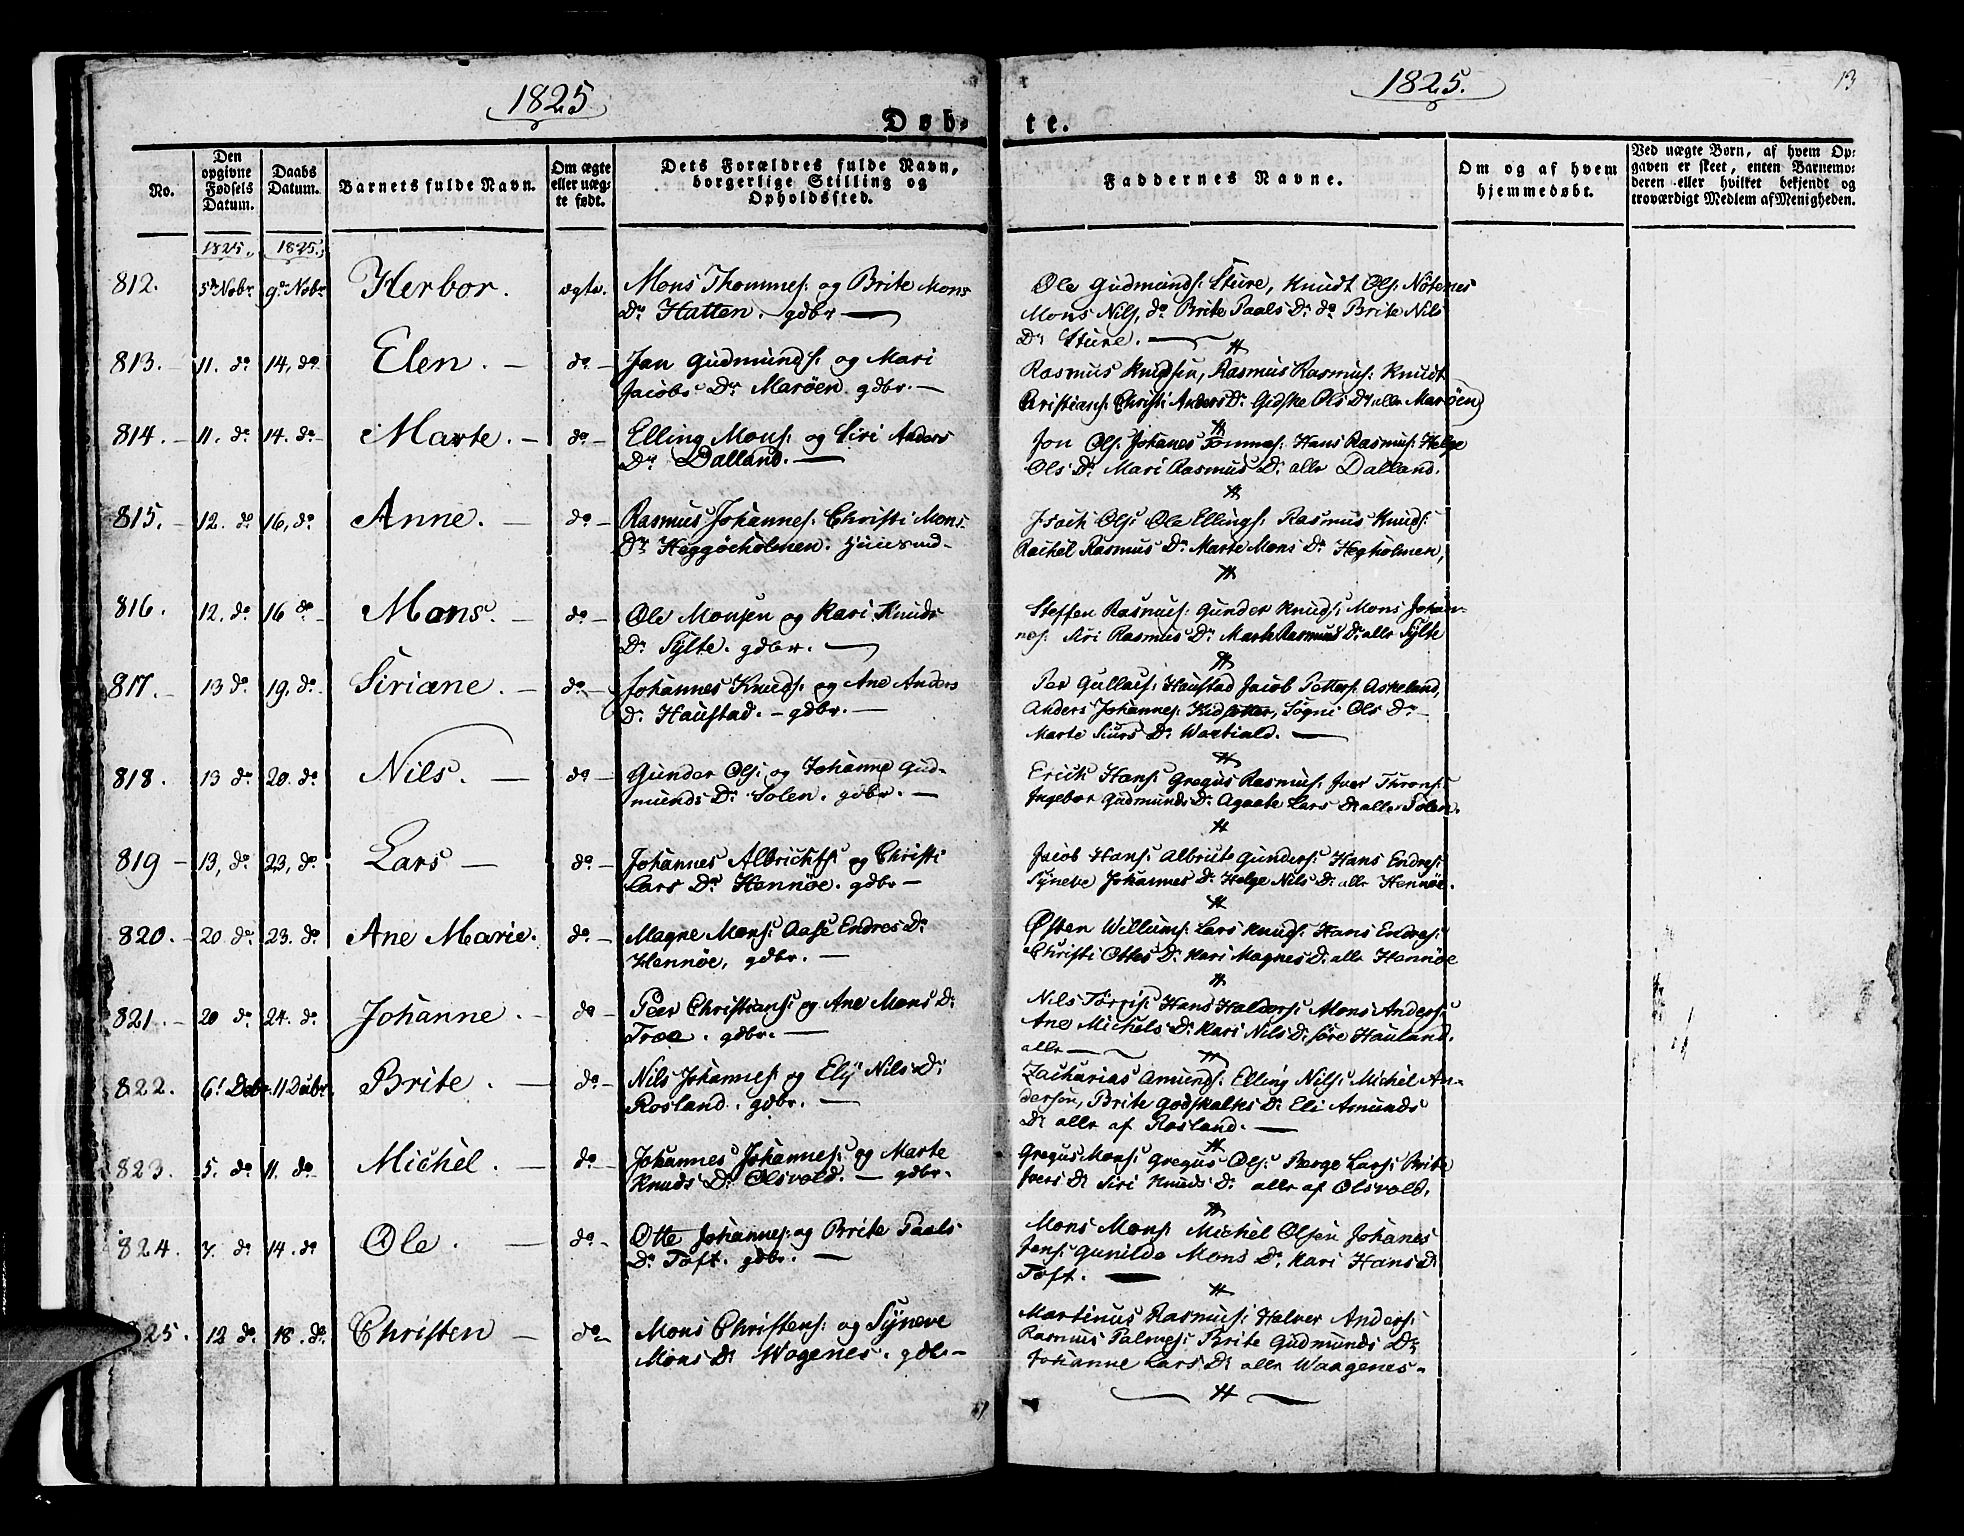 1825
1825.
13
Døb-
te.
No.
Den opgivne Fødsels Datum.
Daabs Datum.
Barnets fulde Navn.
Om ægte eller uægte født.
Dets Forældres fulde Navn, borgerlige Stilling og Opholdssted.
Faddernes Navne.
Om og af hvem hjemmedøbt.
Ved uægte Børn, af hvem Opgaven er skeet, enten Barnemoderen eller hvilket bekjendt og troværdigt Medlem af Menigheden.
1825. 1825.
812. 5te Nobr 9de Nobr Herbor. ægte. Mons Thommes: og Brite Mons
Dr Hatten. gdbr —
Ole Gudmunds: Sture, Knudt Ols: Nötenes
Mons Nils, do Brite Paals Dr do Brite Nils
Dr Sture. —
813. — 11. do 14, do Elen. — do — Jan Gudmunds: og Mari
Jacobs Dr Marøen gdbr. —
Rasmus Knudsen, Rasmus Rasmus: Knudt
Kristians: Christi Anders Dr Gidske Ols Dr alle Marøen
814. — 11. do 14. do — Marte. — do — Elling Mons: og Siri Anders
Dr Dalland. —
Jon Ols: Johanes Tommes: Hans Rasmus: Helge
Ols Dr Mari Rasmus Dr alle Dalland.
815. — 12. do 16, do Anne. — do — Rasmus Johannes: Christi Mons
Dr Heggøeholmen. Huusmd —
Isach Ols: Ole Ellings: Rasmus Knuds:
Rachel Rasmus Dr Marte Mons Dr Hegholmen,
816. 12. do 16 do — Mons. — do — Ole Monsen og Kari Knuds
Dr Sylte. gdbr. —
Steffen Rasmus: Gunder Knuds: Mons Johan-
nes: Siri Rasmus Dr Marte Rasmus Dr alle Sylte
817. — 13 do 19, do — Siriane. — do — Johannes Knuds: og Ane Anders
Dr Haustad. — gdbr. —
Per Gullacs: Haustad Jacob Petters: Askeland,
Anders Johannes: Kidsetter, Sögni Ols Dr —
Marte Siurs Dr —
818. 13 do 20. do Nils. — do — Gunder Ols: og Johanne Gud-
munds Dr Solen. gdbr. —
Erich Hans: Gregus Rasmus: Iver Throns:
Ingebor Gudmunds Dr Agaate Lars Dr alle Solen.
819 — 13, do 23, do Lars — do — Johannes Albrichts: og Christi
Lars Dr Hennøe. gdbr —
Jacob Hans: Albrite Gunders: Hans Endres:
Syneve Johannes Dr Helge Nils Dr alle Hennöe.
820. — 20 do 23. do Ane Marie. do — Magne Mons: Aase Endres Dr
Hennøe, gdbr. —
Østen Willums: Lars Knuds: Hans Endres:
Christi Ottes Dr Kari Magnes Dr alle Hennöe
821. — 20 do 24. do Johanne. — do — Peer Christians: og Ane Mons Dr
Troe. gdbr. —
Nils Torris: Hans Haldors: Mons Anders:
Ane Michels Dr Kari Nils Dr Søre Hauland.
alle —
822. 6t Debr. 11 Debr Brite. — do — Nils Johannes: og Elij Nils Dr
Rosland. gdbr. —
Zacharias Amunds: Elling Nils: Michel An-
dersøn, Brite Godskalks Dr Eli Amunds
Dr alle af Rosland. —
823. 5. do 11. do Michel. — do — Johannes Johannes: og Marte
Knuds Dr Olsvold. — gdbr.
Gregus Mons: Gregus Ols: Berge Lars: Brite
Ivers Dr Siri Knuds Dr alle af Olsvold.
824. 7. do 14. do Ole. — do — Otte Johannes: og Brite Paals
Dr Toft. gdbr. —
Mons Mons: Michel Olsen Johanes
Jens: Gunilde Mons Dr Kari Hans Dr
Toft. —
825. 12 do 18. do Christen — do — Mons Christens: og Syneve
Mons Dr Wogenes. gdb. —
Martinus Rasmus: Halver Anders:
Rasmus Palmes: Brite Gudmunds Dr
Johanne Lars Dr alle Waagenes —